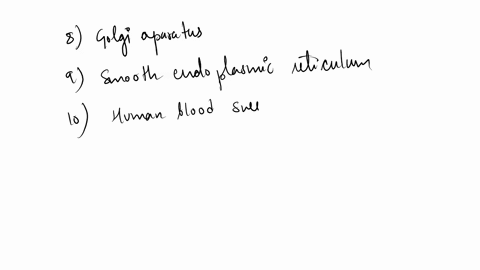 8) Golgi aparatus
9) Smooth endoplasmic reticulum
10) Human blood